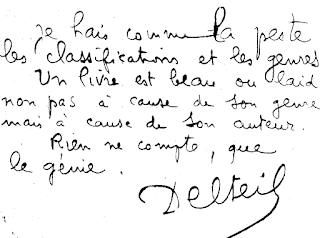 je hais comme la peste
les classifications et les genres
Un livre est beau ou laid
non pas à cause de son genre
mais à cause de son auteur.
Rien ne compte, que
le génie.
Delteil